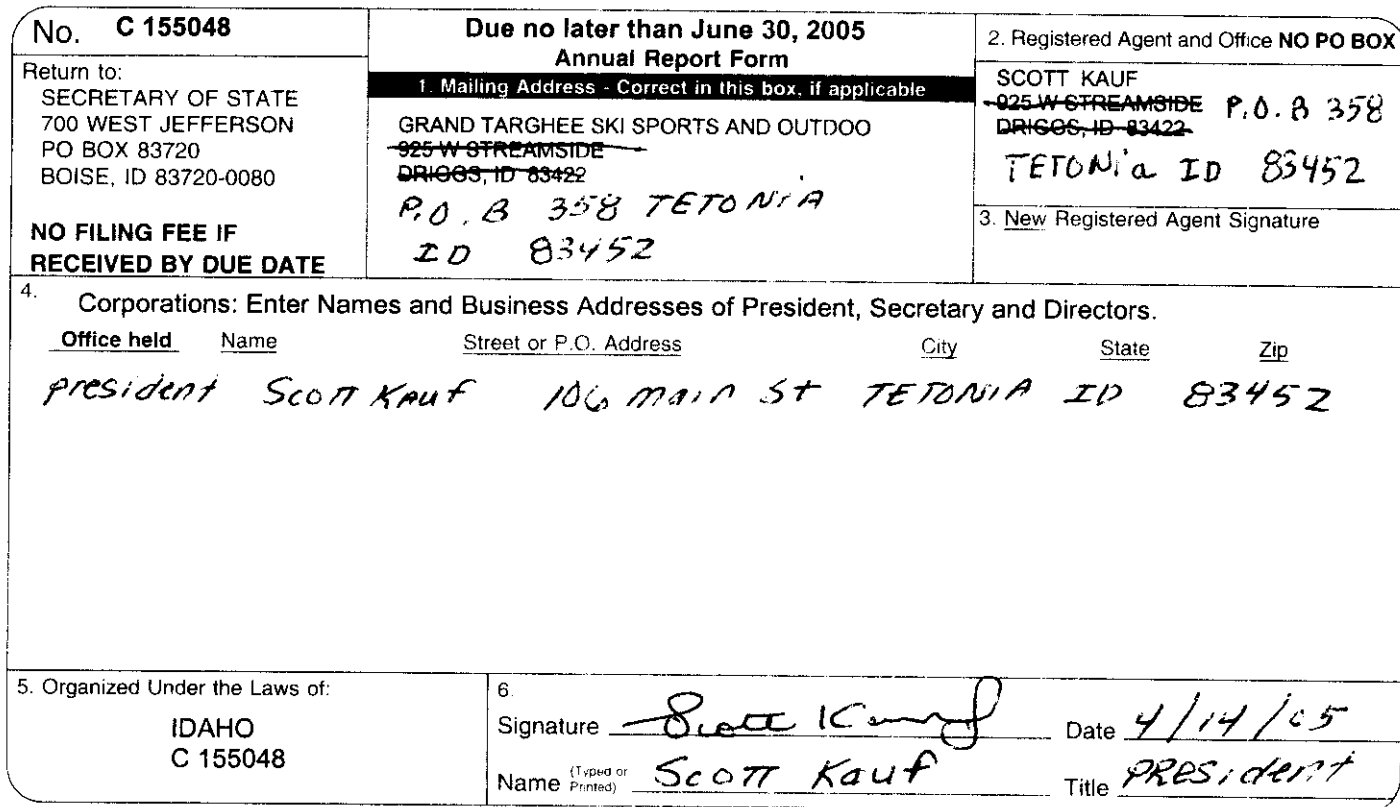 No. C 155048
Return to:
SECRETARY OF STATE
700 WEST JEFFERSON
PO BOX 83720
BOISE, ID 83720-0080
NO FILING FEE IF
RECEIVED BY DUE DATE
Due no later than June 30, 2005
Annual Report Form
1. Mailing Address - Correct in this box, if applicable
GRAND TARGHEE SKI SPORTS AND OUTDOO
925 W STREAMSIDE
DRIGGS, ID 83422
P.O. B 358 TETONIA
ID 83452
2. Registered Agent and Office NO PO BOX
SCOTT KAUF
925 W STREAMSIDE P.O. B 358
DRIGGS, ID 83422
TETONia ID 83452
3. New Registered Agent Signature
4. Corporations: Enter Names and Business Addresses of President, Secretary and Directors.
Office held Name Street or P.O. Address City State Zip
president Scott Kauf 106 main St TETONIA ID 83452
5. Organized Under the Laws of:
IDAHO
C 155048
6.
Signature Scott Kauf Date 4/14/05
Name (Typed or Printed) Scott Kauf Title PRESident